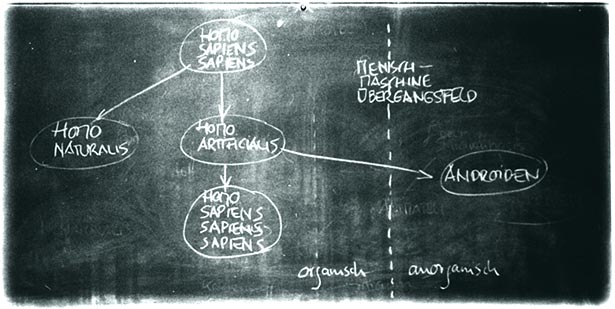 HOMO
SAPIENS
SAPIENS
MENSCH–
MASCHINE
ÜBERGANGSFELD
HOMO
NATURALIS
HOMO
ARTIFICIALIS
ANDROIDEN
HOMO
SAPIENS
SAPIENS
SAPIENS
organisch
anorganisch